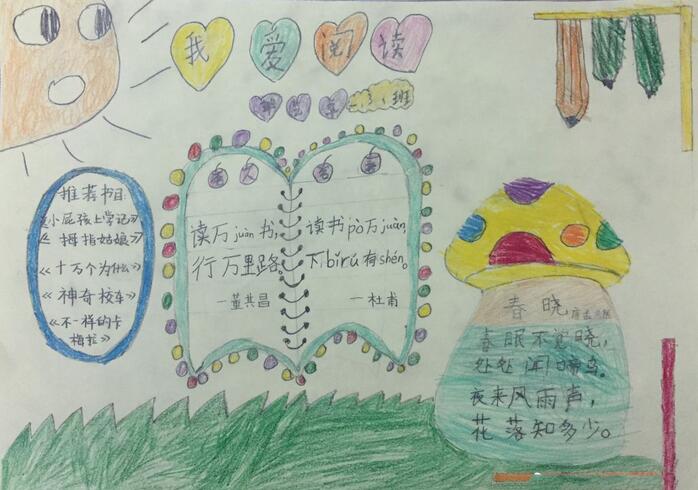 我 爱 阅 读
班
推荐书目:
《小屁孩上学记》
《拇指姑娘》
《十万个为什么》
《神奇校车》
《不一样的卡
梅拉》
名 人 名 言
读万juàn书,
行万里路。
—董其昌
读书pò万juàn
下bǐ rú有shén。
—杜甫
春 晓
春眠不觉晓,
处处闻啼鸟。
夜来风雨声,
花落知多少。